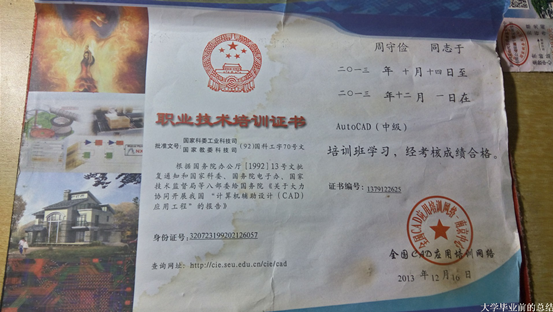 职业技术培训证书
批准文号：国家科委工业科技司
国家教委科技司
(92)国科工字70号文
根据国务院办公厅[1992]13号文批
复通知和国家科委、国务院电子办、国家
技术监督局等八部委给国务院《关于大力
协同开展我国“计算机辅助设计(CAD)
应用工程”的报告》
身份证号：320723199202126057
查询网址：http://cie.seu.edu.cn/cie/cad
周守俭 同志于
二〇一三年 十月十四日至
二〇一三年十二月 一日在
AutoCAD(中级)
培训班学习，经考核成绩合格。
证书编号：1379122625
全国CAD应用培训网络
2013年12月10日
大学毕业前的总结